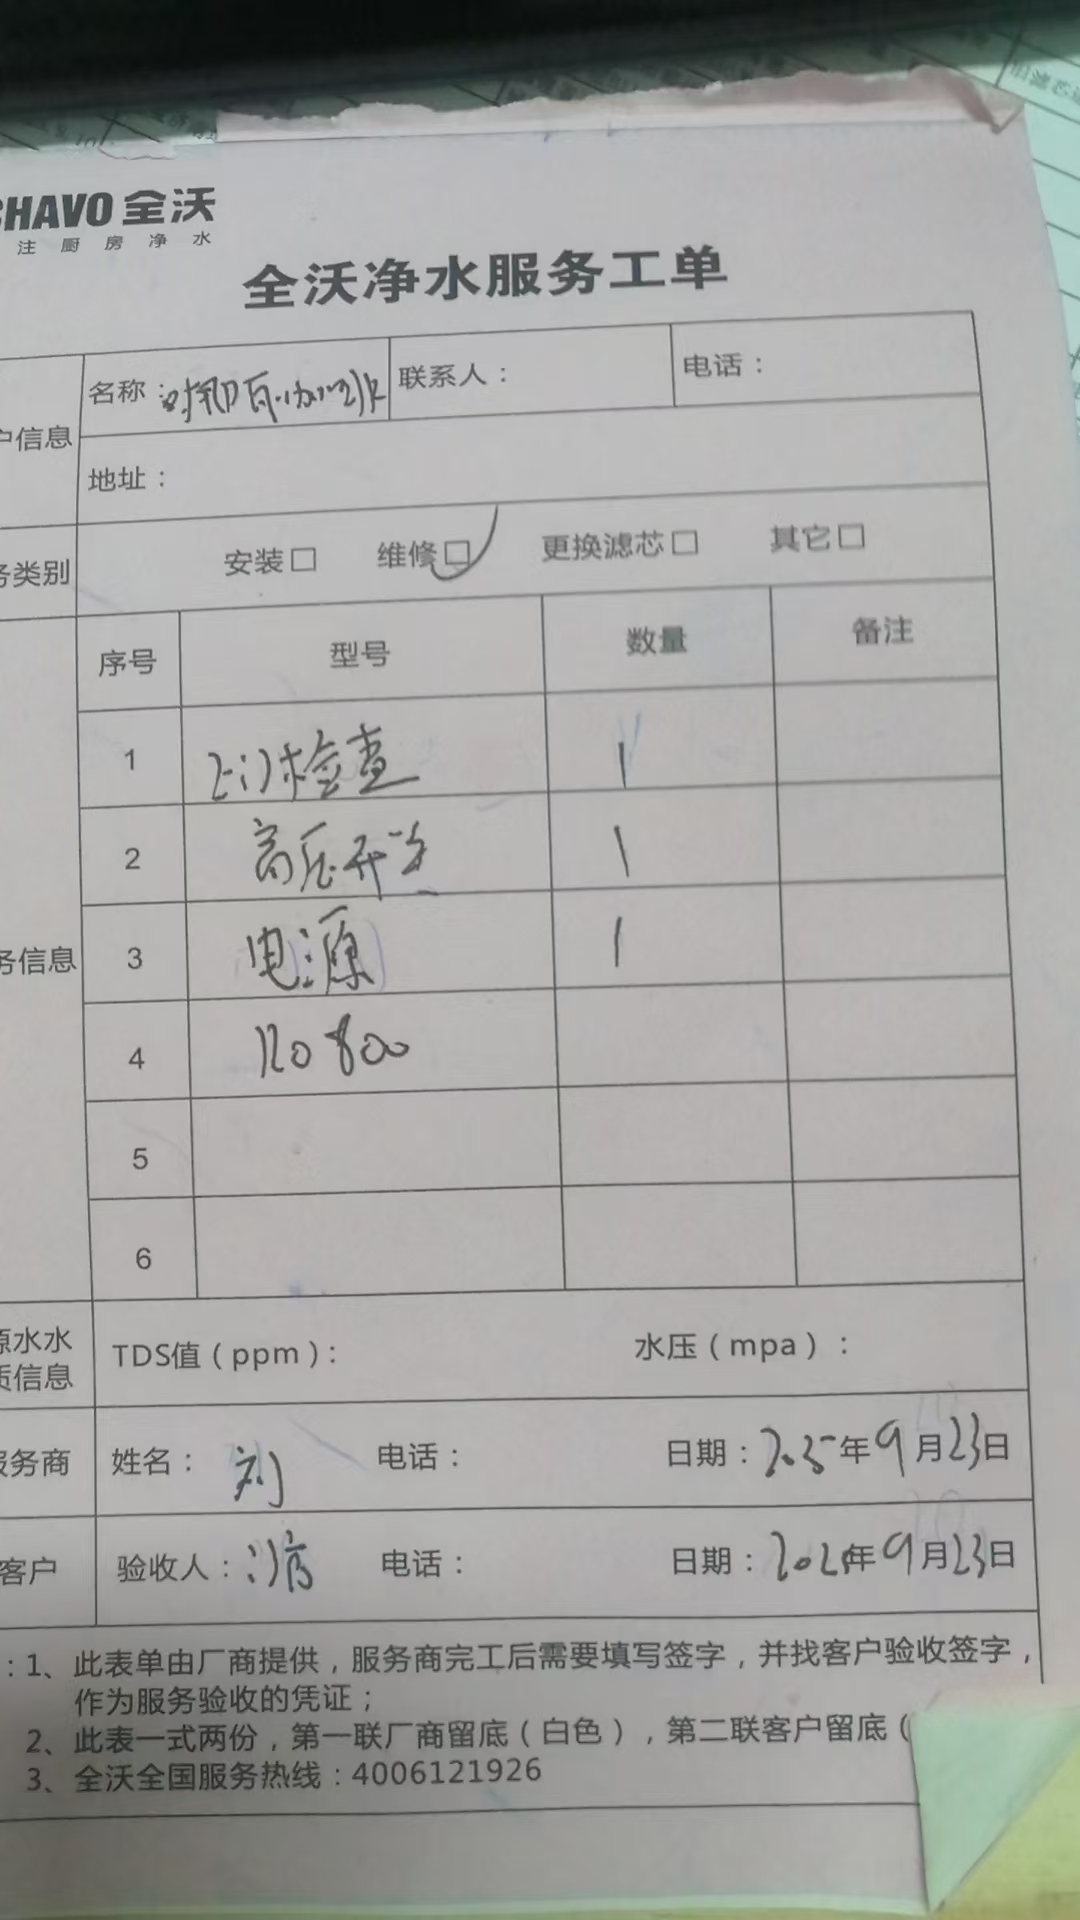 CHAVO 全沃
注厨房净水
全沃净水服务工单
户信息
名称：
联系人：
电话：
地址：
务类别
安装□ 维修□ 更换滤芯□ 其它□
序号 型号 数量 备注
务信息
1 上门检查 1
2 高压开关 1
3 电源 1
4 RO 800
5
6
原水水
质信息
TDS值（ppm）： 水压（mpa）：
服务商 姓名：刘 电话： 日期：2025年9月23日
客户 验收人： 电话： 日期：2025年9月23日
：1、此表单由厂商提供，服务商完工后需要填写签字，并找客户验收签字，
作为服务验收的凭证；
2、此表一式两份，第一联厂商留底（白色），第二联客户留底（
3、全沃全国服务热线：4006121926